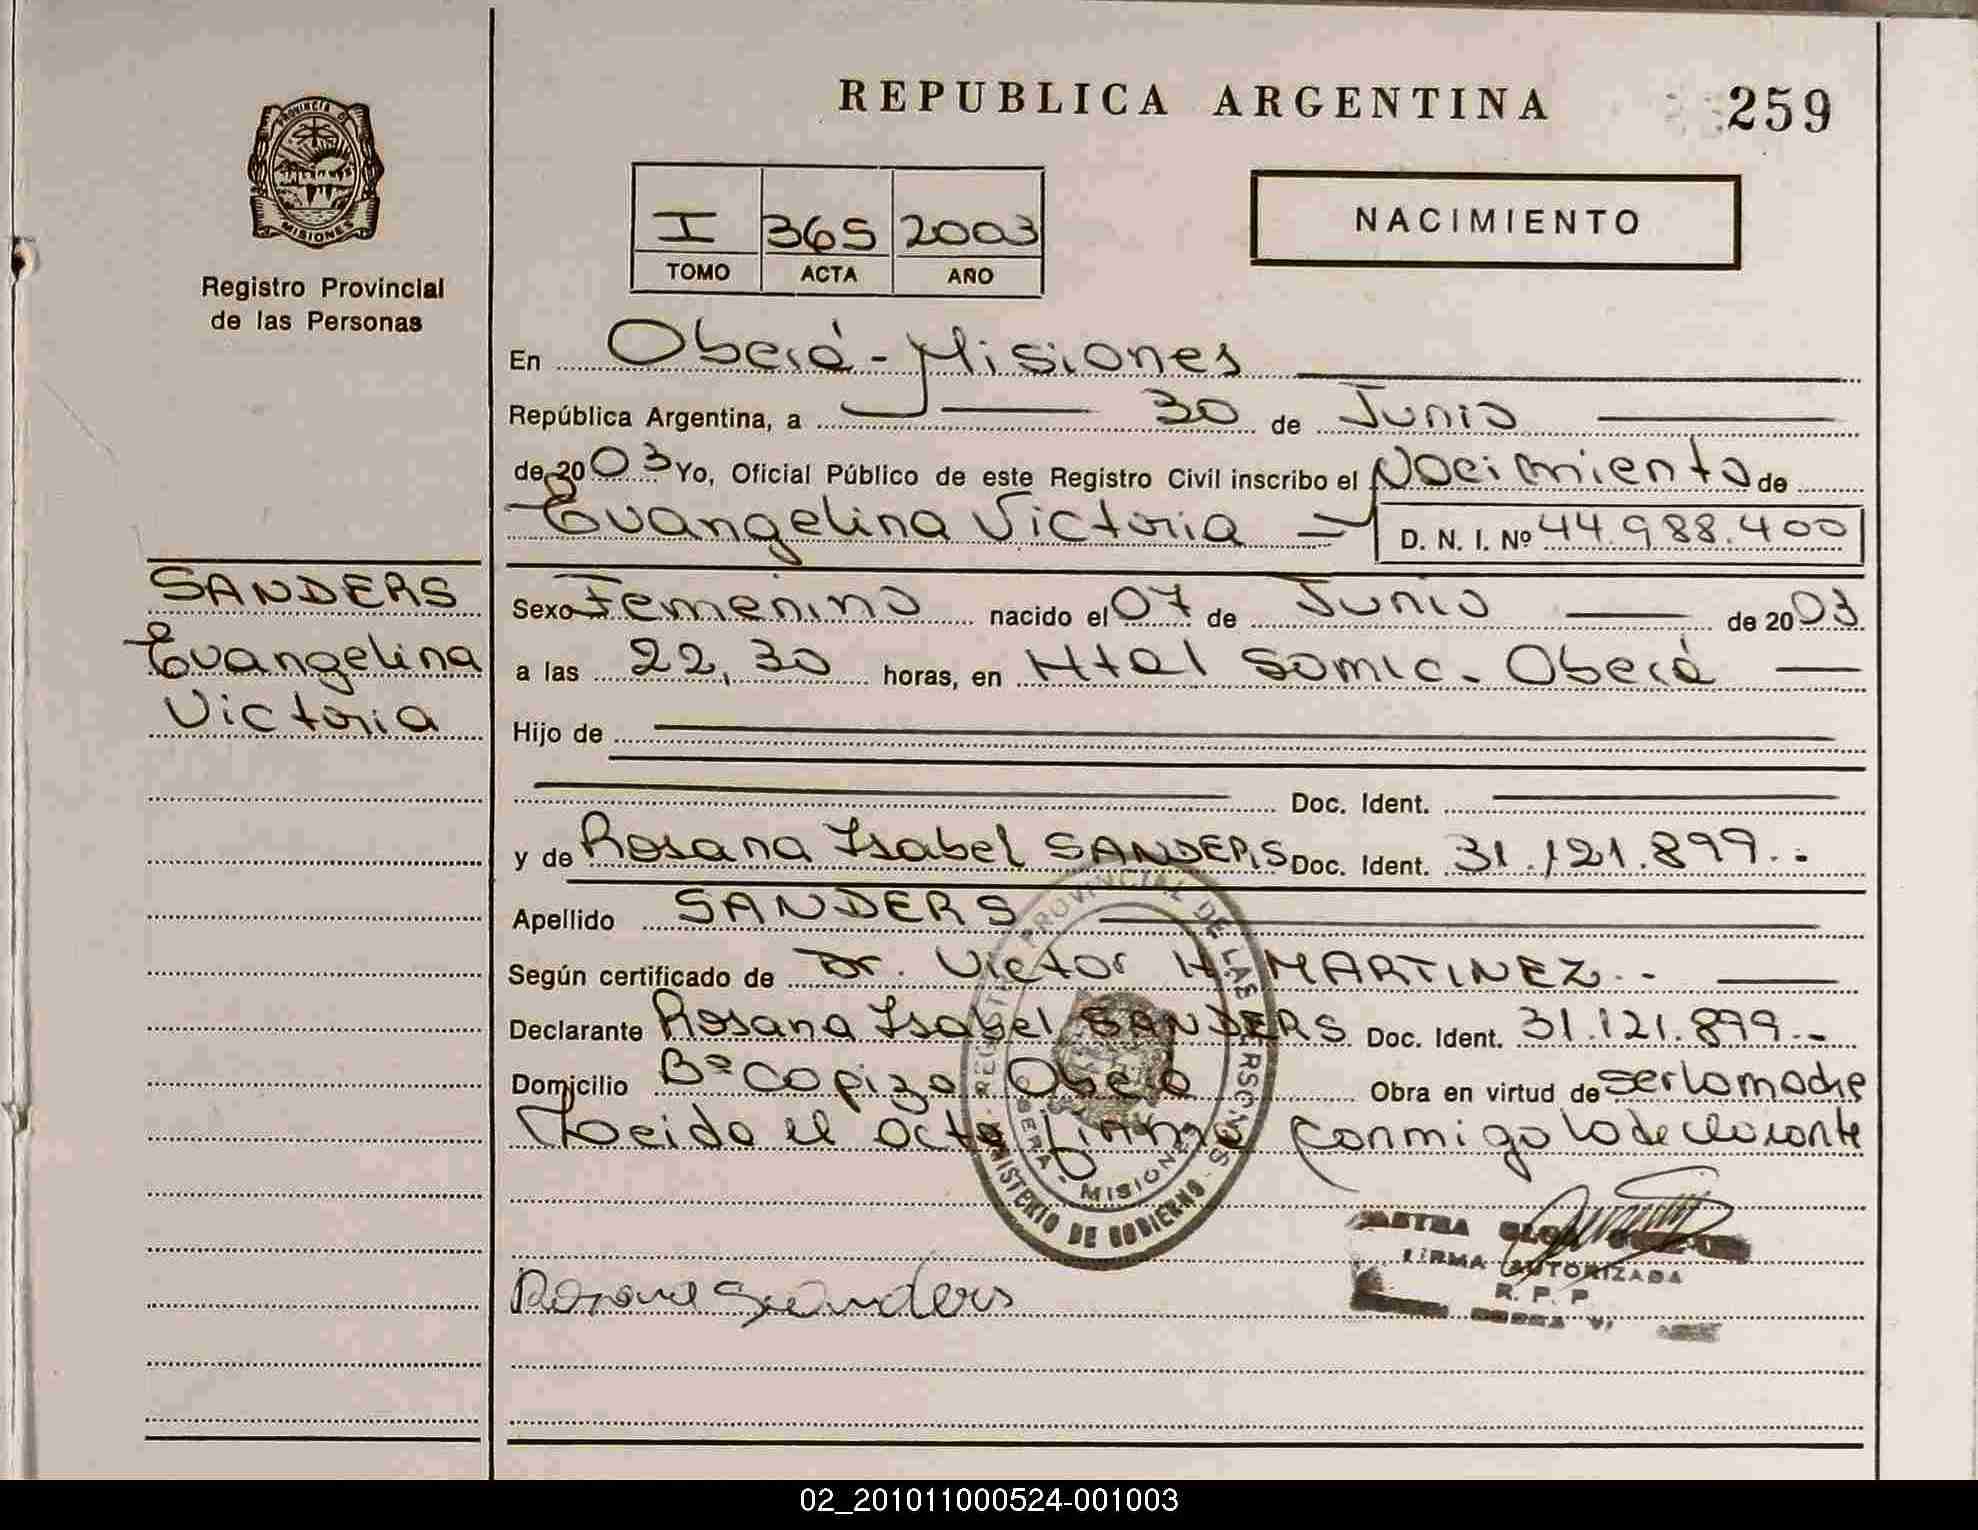 REPUBLICA ARGENTINA
259
PROVINCIA D
MISIONES
Registro Provincial
de las Personas
I 365 2003
TOMO ACTA AÑO
NACIMIENTO
En Oberá - Misiones
República Argentina, a 30 de Junio
de 2003 Yo, Oficial Público de este Registro Civil inscribo el Nacimiento de
Evangelina Victoria D. N. I. Nº 44.988.400
SANDERS
Evangelina
Victoria
Sexo Femenino nacido el 07 de Junio de 2003
a las 22,30 horas, en Htal Samic - Oberá
Hijo de
Doc. Ident.
y de Rosana Isabel SANDERS Doc. Ident. 31.121.899..
Apellido SANDERS
Según certificado de Dr. Victor H MARTINEZ..
Declarante Rosana Isabel SANDERS. Doc. Ident. 31.121.899..
Domicilio Bº Copiza Oberá Obra en virtud de ser la madre
Leida el acta firma conmigo la declarante
REGISTRO PROVINCIAL DE LAS PERSONAS
MINISTERIO DE GOBIERNO
OBERA - MISIONES
Rosana Sanders
FIRMA AUTORIZADA
R. P. P
02_201011000524-001003